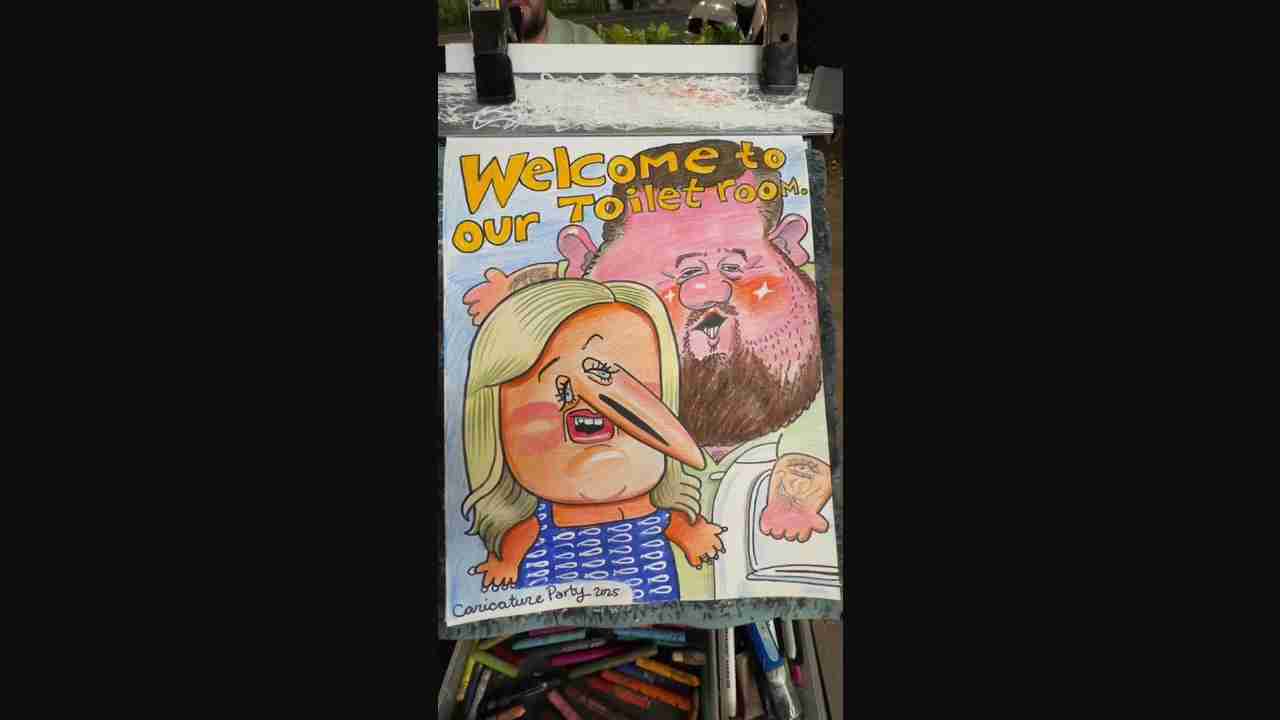 Welcome to
our Toilet room.
Caricature Party 2025